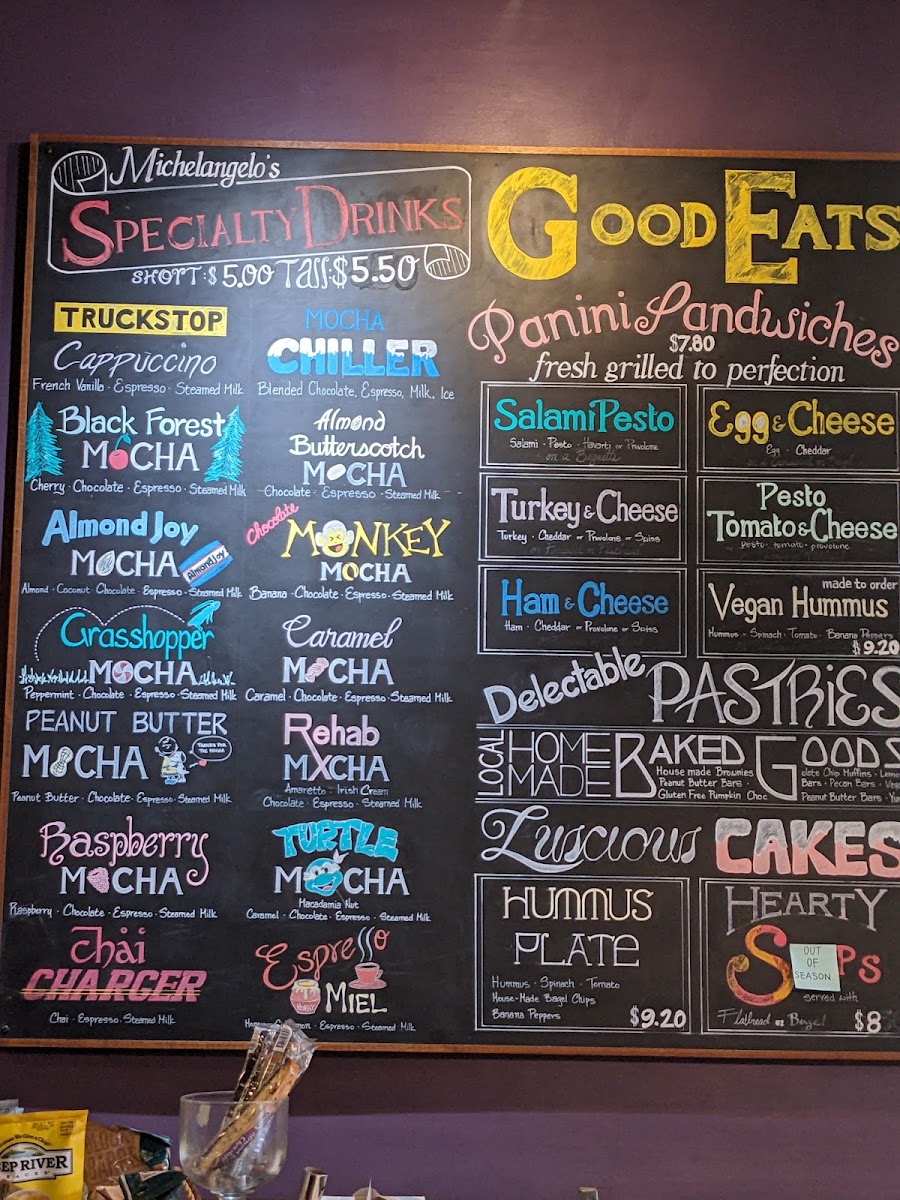 Michelangelo's
SPECIALTY DRINKS
SHORT: $5.00 Tall: $5.50
TRUCKSTOP
Cappuccino
French Vanilla · Espresso · Steamed Milk
Black Forest
MOCHA
Cherry · Chocolate · Espresso · Steamed Milk
Almond Joy
MOCHA
Almond Joy
Almond · Coconut · Chocolate · Espresso · Steamed Milk
Grasshopper
MOCHA
Peppermint · Chocolate · Espresso · Steamed Milk
PEANUT BUTTER
MOCHA
THANKS FOR
THE MOCHA
Peanut Butter · Chocolate · Espresso · Steamed Milk
Raspberry
MOCHA
Raspberry · Chocolate · Espresso · Steamed Milk
Chai
CHARGER
Chai · Espresso · Steamed Milk
MOCHA
CHILLER
Blended Chocolate, Espresso, Milk, Ice
Almond
Butterscotch
MOCHA
Chocolate · Espresso · Steamed Milk
Chocolate
MONKEY
MOCHA
Banana · Chocolate · Espresso · Steamed Milk
Caramel
MOCHA
Caramel · Chocolate · Espresso · Steamed Milk
Rehab
MXCHA
Amaretto · Irish Cream
Chocolate · Espresso · Steamed Milk
TURTLE
MOCHA
Macadamia Nut
Caramel · Chocolate · Espresso · Steamed Milk
Espresso
MIEL
Espresso · Steamed Milk
GOOD EATS
Panini Sandwiches
$7.80
fresh grilled to perfection
Salami Pesto
Salami · Pesto · Havarti or Provolone
on a Baguette
Egg & Cheese
Egg · Cheddar
Turkey & Cheese
Turkey · Cheddar or Provolone or Swiss
Pesto
Tomato & Cheese
pesto · tomato · provolone
Ham & Cheese
Ham · Cheddar or Provolone or Swiss
made to order
Vegan Hummus
Hummus · Spinach · Tomato · Banana Peppers
$9.20
Delectable PASTRiES
LOCAL HOME MADE BAKED GOODS
House made Brownies
Peanut Butter Bars
Gluten Free Pumpkin Choc
olate Chip Muffins · Lemon
Bars · Pecan Bars · Vega
Peanut Butter Bars · Yu
Luscious CAKES
HUMMUS
PLATE
Hummus · Spinach · Tomato
House-Made Bagel Chips
Banana Peppers
$9.20
HEARTY
S PS
OUT
OF
SEASON
served with
Flatbread or Bagel
$8
EEP RIVER